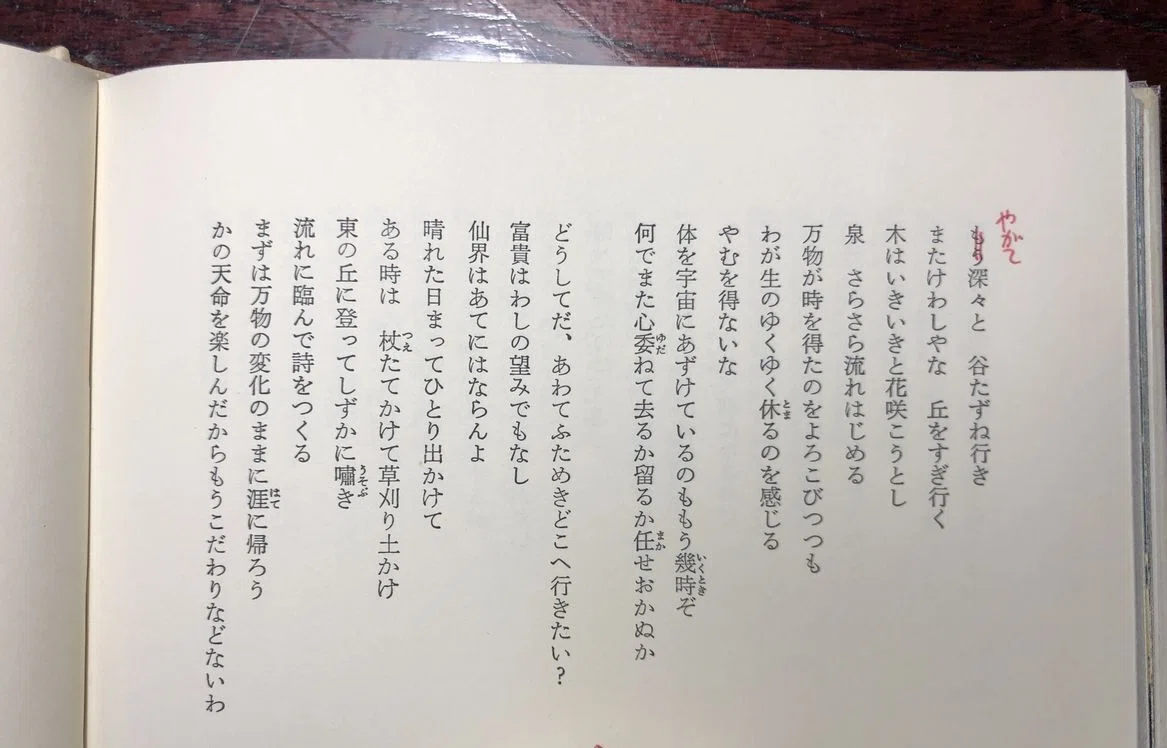 やがて
深々と　谷たずね行き
またけわしやな　丘をすぎ行く
木はいきいきと花咲こうとし
泉　さらさら流れはじめる
万物が時を得たのをよろこびつつも
とま
わが生のゆくゆく休るのを感じる
やむを得ないな
いくとき
体を宇宙にあずけているのももう幾時ぞ
ゆだ　まか
何でまた心委ねて去るか留るか任せおかぬか
どうしてだ、あわてふためきどこへ行きたい？
富貴はわしの望みでもなし
仙界はあてにはならんよ
晴れた日まってひとり出かけて
つえ
ある時は　杖たてかけて草刈り土かけ
うそぶ
東の丘に登ってしずかに嘯き
流れに臨んで詩をつくる
はて
まずは万物の変化のままに涯に帰ろう
かの天命を楽しんだからもうこだわりなどないわ